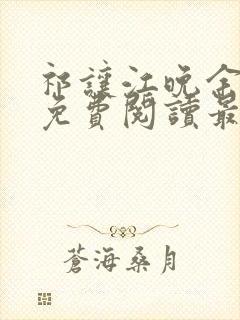 祁讓江晚余
免費閱讀最
蒼海桑月